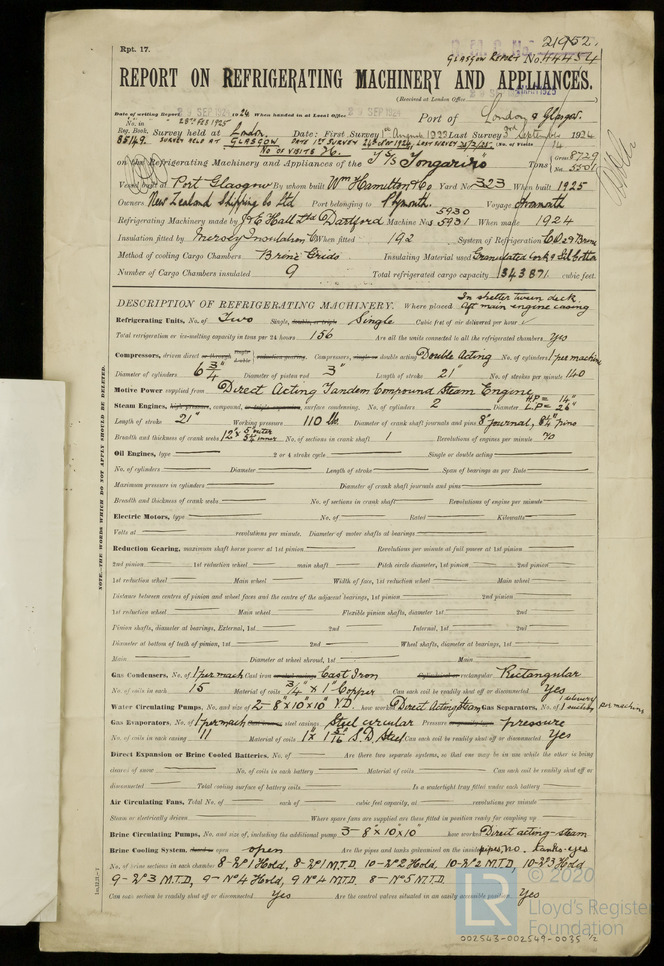 Rpt. 17.
21952.
Glasgow Report No. 44454
REPORT ON REFRIGERATING MACHINERY AND APPLIANCES.
(Received at London Office
Date of writing Report 19 24 When handed in at Local Office Port of London & Glasgow
No. in Reg. Book. Survey held at London Date: First Survey Last Survey 3rd September 1924
85149. SURVEY HELD AT GLASGOW DATE 1ST SURVEY LAST SURVEY (No. of Visits 14
No OF VISITS 76.
on the Refrigerating Machinery and Appliances of the T/S/S Tongariro Tons Gross 8729
Vessel built at Port Glasgow By whom built Wm Hamilton & Co Yard No 323 When built 1925
Owners New Zealand Shipping Co Ltd Port belonging to Plymouth Voyage
Refrigerating Machinery made by J & E Hall Ltd Dartford Machine Nos 5930 5931 When made 1924
Insulation fitted by Mersey Insulation Co When fitted 192 System of Refrigeration CO2 & Brine
Method of cooling Cargo Chambers Brine Grids Insulating Material used Granulated Cork & Sil. Cotton
Number of Cargo Chambers insulated 9 Total refrigerated cargo capacity 343871 cubic feet.
DESCRIPTION OF REFRIGERATING MACHINERY. Where placed In shelter tween deck. Aft main engine casing
Refrigerating Units, No. of Two Single, double, or triple Single Cubic feet of air delivered per hour
Total refrigeration or ice-melting capacity in tons per 24 hours 156 Are all the units connected to all the refrigerated chambers Yes
Compressors, driven direct or through single double reduction gearing. Compressors, single or double acting Double Acting No. of cylinders 1 per machine
Diameter of cylinders 6 3/4" Diameter of piston rod 3" Length of stroke 21" No. of strokes per minute 140
Motive Power supplied from Direct Acting Tandem Compound Steam Engine
Steam Engines, high pressure, compound, or triple expansion, surface condensing. No. of cylinders 2 Diameter H.P= 14" L.P= 26"
Length of stroke 21" Working pressure 110 lb. Diameter of crank shaft journals and pins 8" journal, 8 1/4" pins
Breadth and thickness of crank webs No. of sections in crank shaft 1 Revolutions of engines per minute 70
Oil Engines, type 2 or 4 stroke cycle Single or double acting
No. of cylinders Diameter Length of stroke Span of bearings as per Rule
Maximum pressure in cylinders Diameter of crank shaft journals and pins
Breadth and thickness of crank webs No. of sections in crank shaft Revolutions of engine per minute
Electric Motors, type No. of Rated Kilowatts
Volts at revolutions per minute. Diameter of motor shafts at bearings
Reduction Gearing, maximum shaft horse power at 1st pinion Revolutions per minute at full power at 1st pinion
2nd pinion 1st reduction wheel main shaft Pitch circle diameter, 1st pinion 2nd pinion
1st reduction wheel Main wheel Width of face, 1st reduction wheel Main wheel
Distance between centres of pinion and wheel faces and the centre of the adjacent bearings, 1st pinion 2nd pinion
1st reduction wheel Main wheel Flexible pinion shafts, diameter 1st 2nd
Pinion shafts, diameter at bearings, External, 1st 2nd Internal, 1st 2nd
Diameter at bottom of teeth of pinion, 1st 2nd Wheel shafts, diameter at bearings, 1st
Main Diameter at wheel shroud, 1st Main
Gas Condensers, No. of 1 per mach Cast iron or steel casings Cast Iron Cylindrical or rectangular Rectangular
No. of coils in each 15 Material of coils 3/4" x 1" Copper Can each coil be readily shut off or disconnected Yes
Water Circulating Pumps, No. and size of 2-8"x10"x10" VD. how worked Direct Acting Steam Gas Separators, No. of 1 delivery 1 suction per machine
Gas Evaporators, No. of 1 per mach Cast iron or steel casings Steel circular Pressure or gravity type pressure
No. of coils in each casing 11 Material of coils 1" x 1 5/16" S.D. Steel Can each coil be readily shut off or disconnected Yes
Direct Expansion or Brine Cooled Batteries. No. of Are there two separate systems, so that one may be in use while the other is being
cleared of snow No. of coils in each battery Material of coils Can each coil be readily shut off or
disconnected Total cooling surface of battery coils Is a watertight tray fitted under each battery
Air Circulating Fans, Total No. of each of cubic feet capacity, at revolutions per minute
Steam or electrically driven Where spare fans are supplied are these fitted in position ready for coupling up
Brine Circulating Pumps, No. and size of, including the additional pump 3-8"x10"x10" how worked Direct acting-steam
Brine Cooling System, closed or open open Are the pipes and tanks galvanised on the inside pipes, no. tanks-yes
No. of brine sections in each chamber 8-No1 Hold, 8-No1 M.T.D, 10-No2 Hold, 10-No2 M.T.D, 10-No3 Hold
9-No3 M.T.D, 9-No4 Hold, 9 No4 M.T.D. 8-No5 M.T.D.
Can each section be readily shut off or disconnected Yes Are the control valves situated in an easily accessible position Yes
NOTE.—THE WORDS WHICH DO NOT APPLY SHOULD BE DELETED.
© 2020
LR Lloyd's Register Foundation
002543-002549-0035 1/2